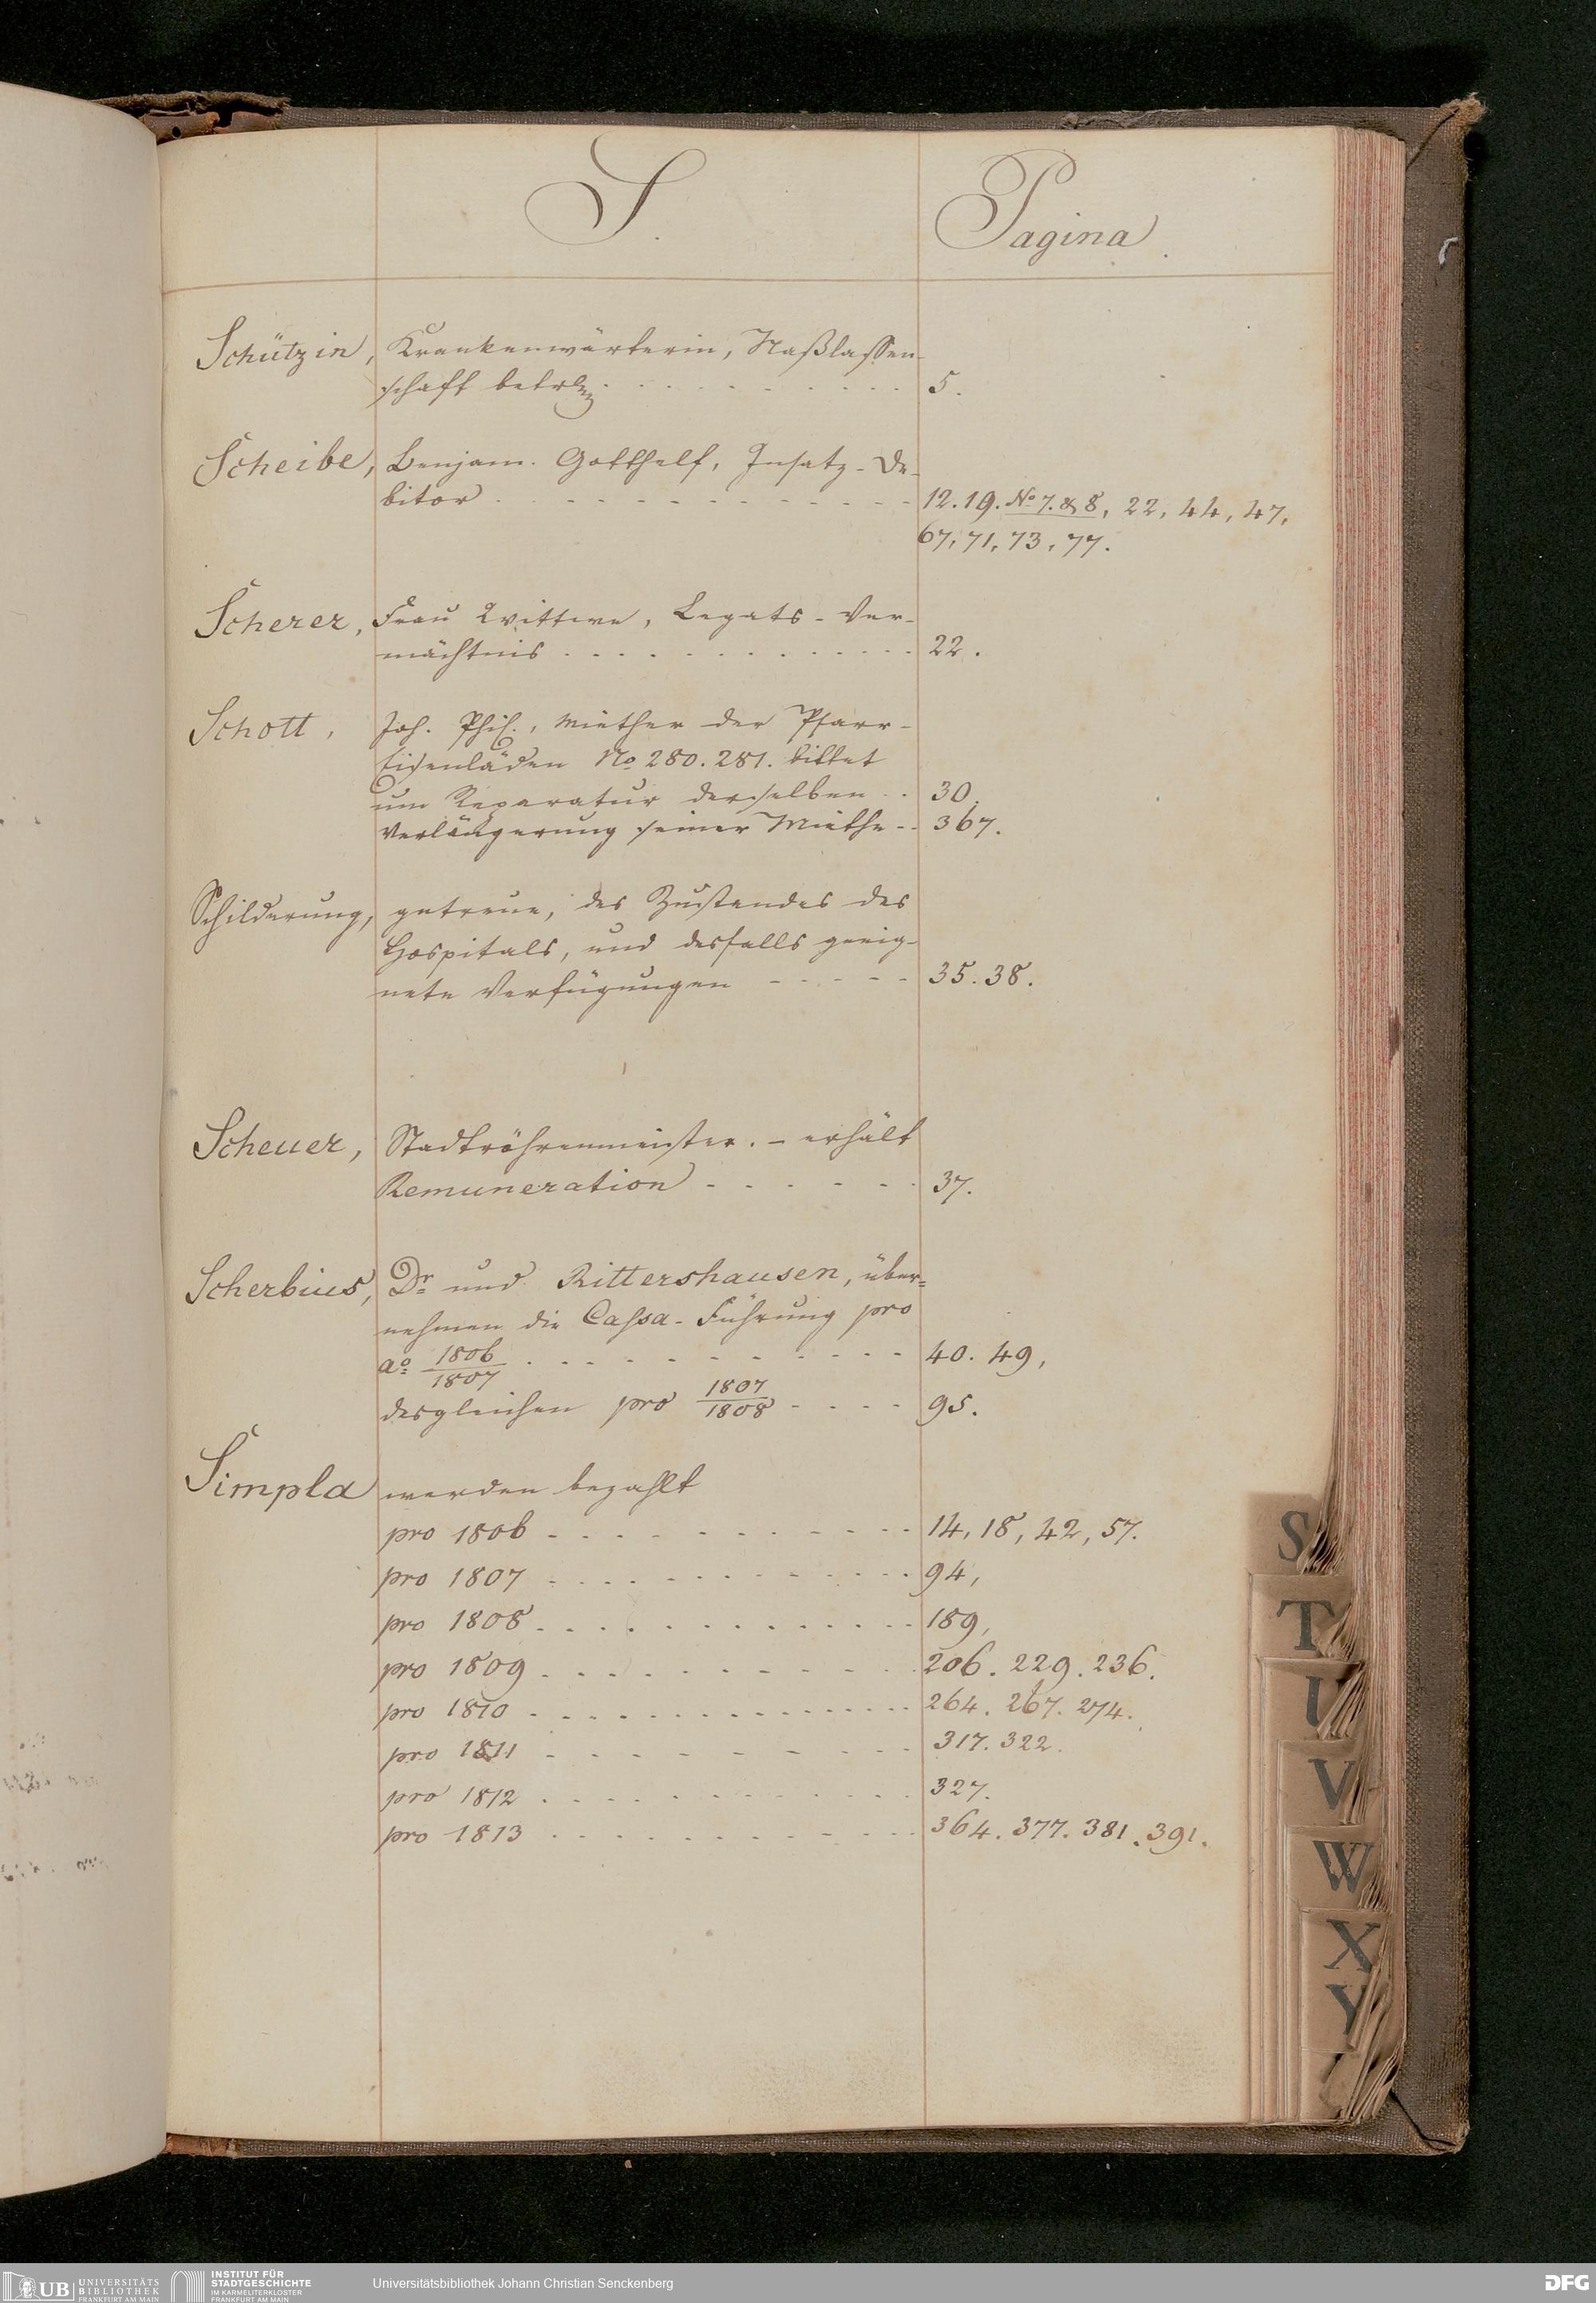 S.
Pagina.
Schützin, Krankenwärterin, Naßlassen-
schaft betr. 5.
Scheibe, Benjam. Gotthelf, Insatz-De-
bitor 12. 19. No 7. & 8, 22, 44, 47,
67, 71, 73, 77.
Scherer, Frau Wittwe, Legats-Ver-
mächtnis 22.
Schott, Joh. Phil., Miether der Pfarr-
Eisenläden No 280. 281. bittet
um Reparatur derselben 30.
Verlängerung seiner Miethe 367.
Schilderung, getreue, des Zustandes des
Hospitals, und desfalls geeig-
nete Verfügungen 35. 38.
Scheuer, Stadtröhrenmeister. - erhält
Remuneration 37.
Scherbius, Dr und Rittershausen, über-
nehmen die Cassa-Führung pro
ao 1806/1807 40. 49,
desgleichen pro 1807/1808 95.
Simpla werden bezahlt
pro 1806 14, 18, 42, 57.
pro 1807 94,
pro 1808 189,
pro 1809 206. 229. 236.
pro 1810 264. 267. 274.
pro 1811 317. 322.
pro 1812 327.
pro 1813 364. 377. 381. 391.
S
T
U
V
W
X
Y
UB UNIVERSITÄTS BIBLIOTHEK FRANKFURT AM MAIN
INSTITUT FÜR STADTGESCHICHTE IM KARMELITERKLOSTER FRANKFURT AM MAIN
Universitätsbibliothek Johann Christian Senckenberg
DFG